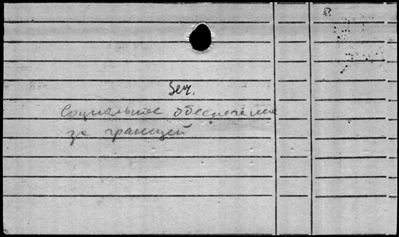 Социальное обеспечение
за границей